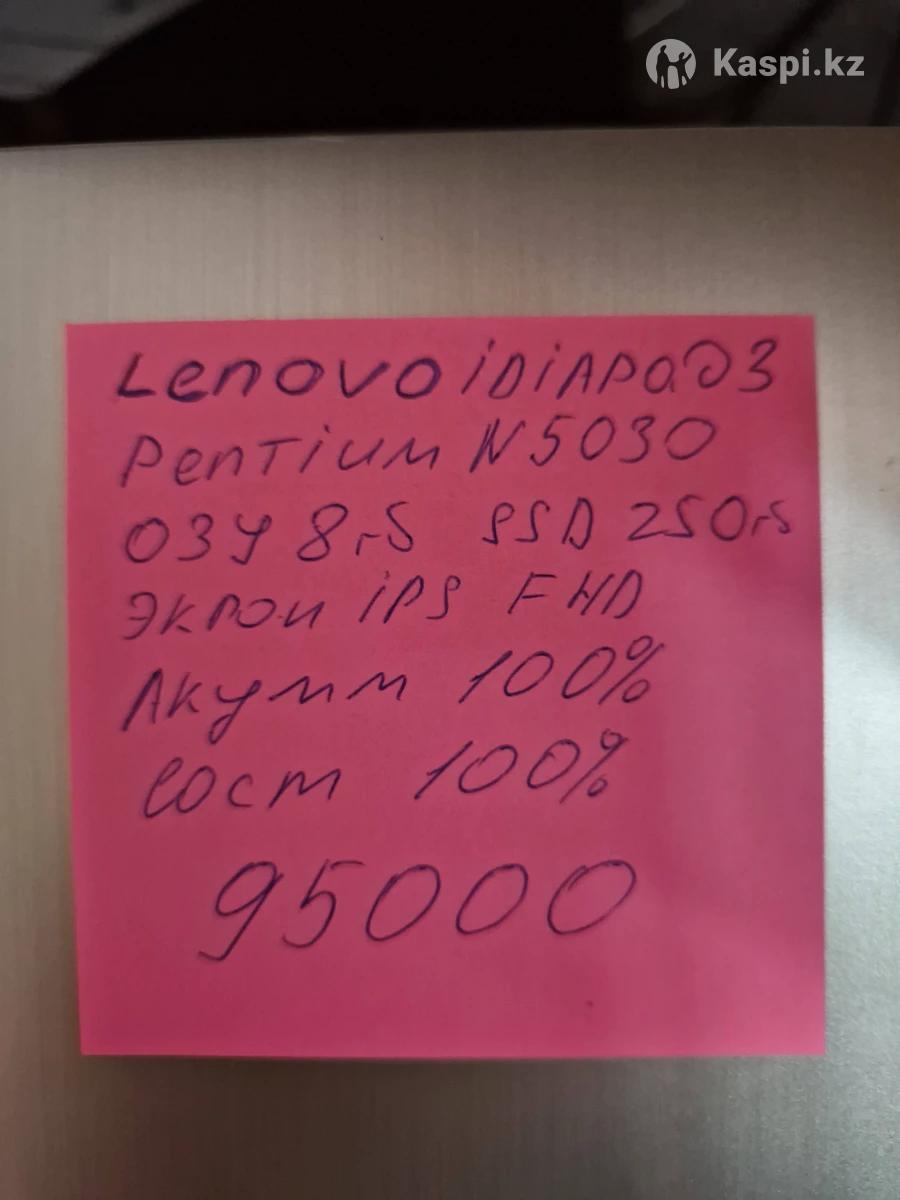 Kaspi.kz
Lenovo iDiAPaд 3
Pentium N5030
ОЗУ 8гб SSD 250гб
Экрон iPS FHD
Акумм 100%
Сост 100%
95000